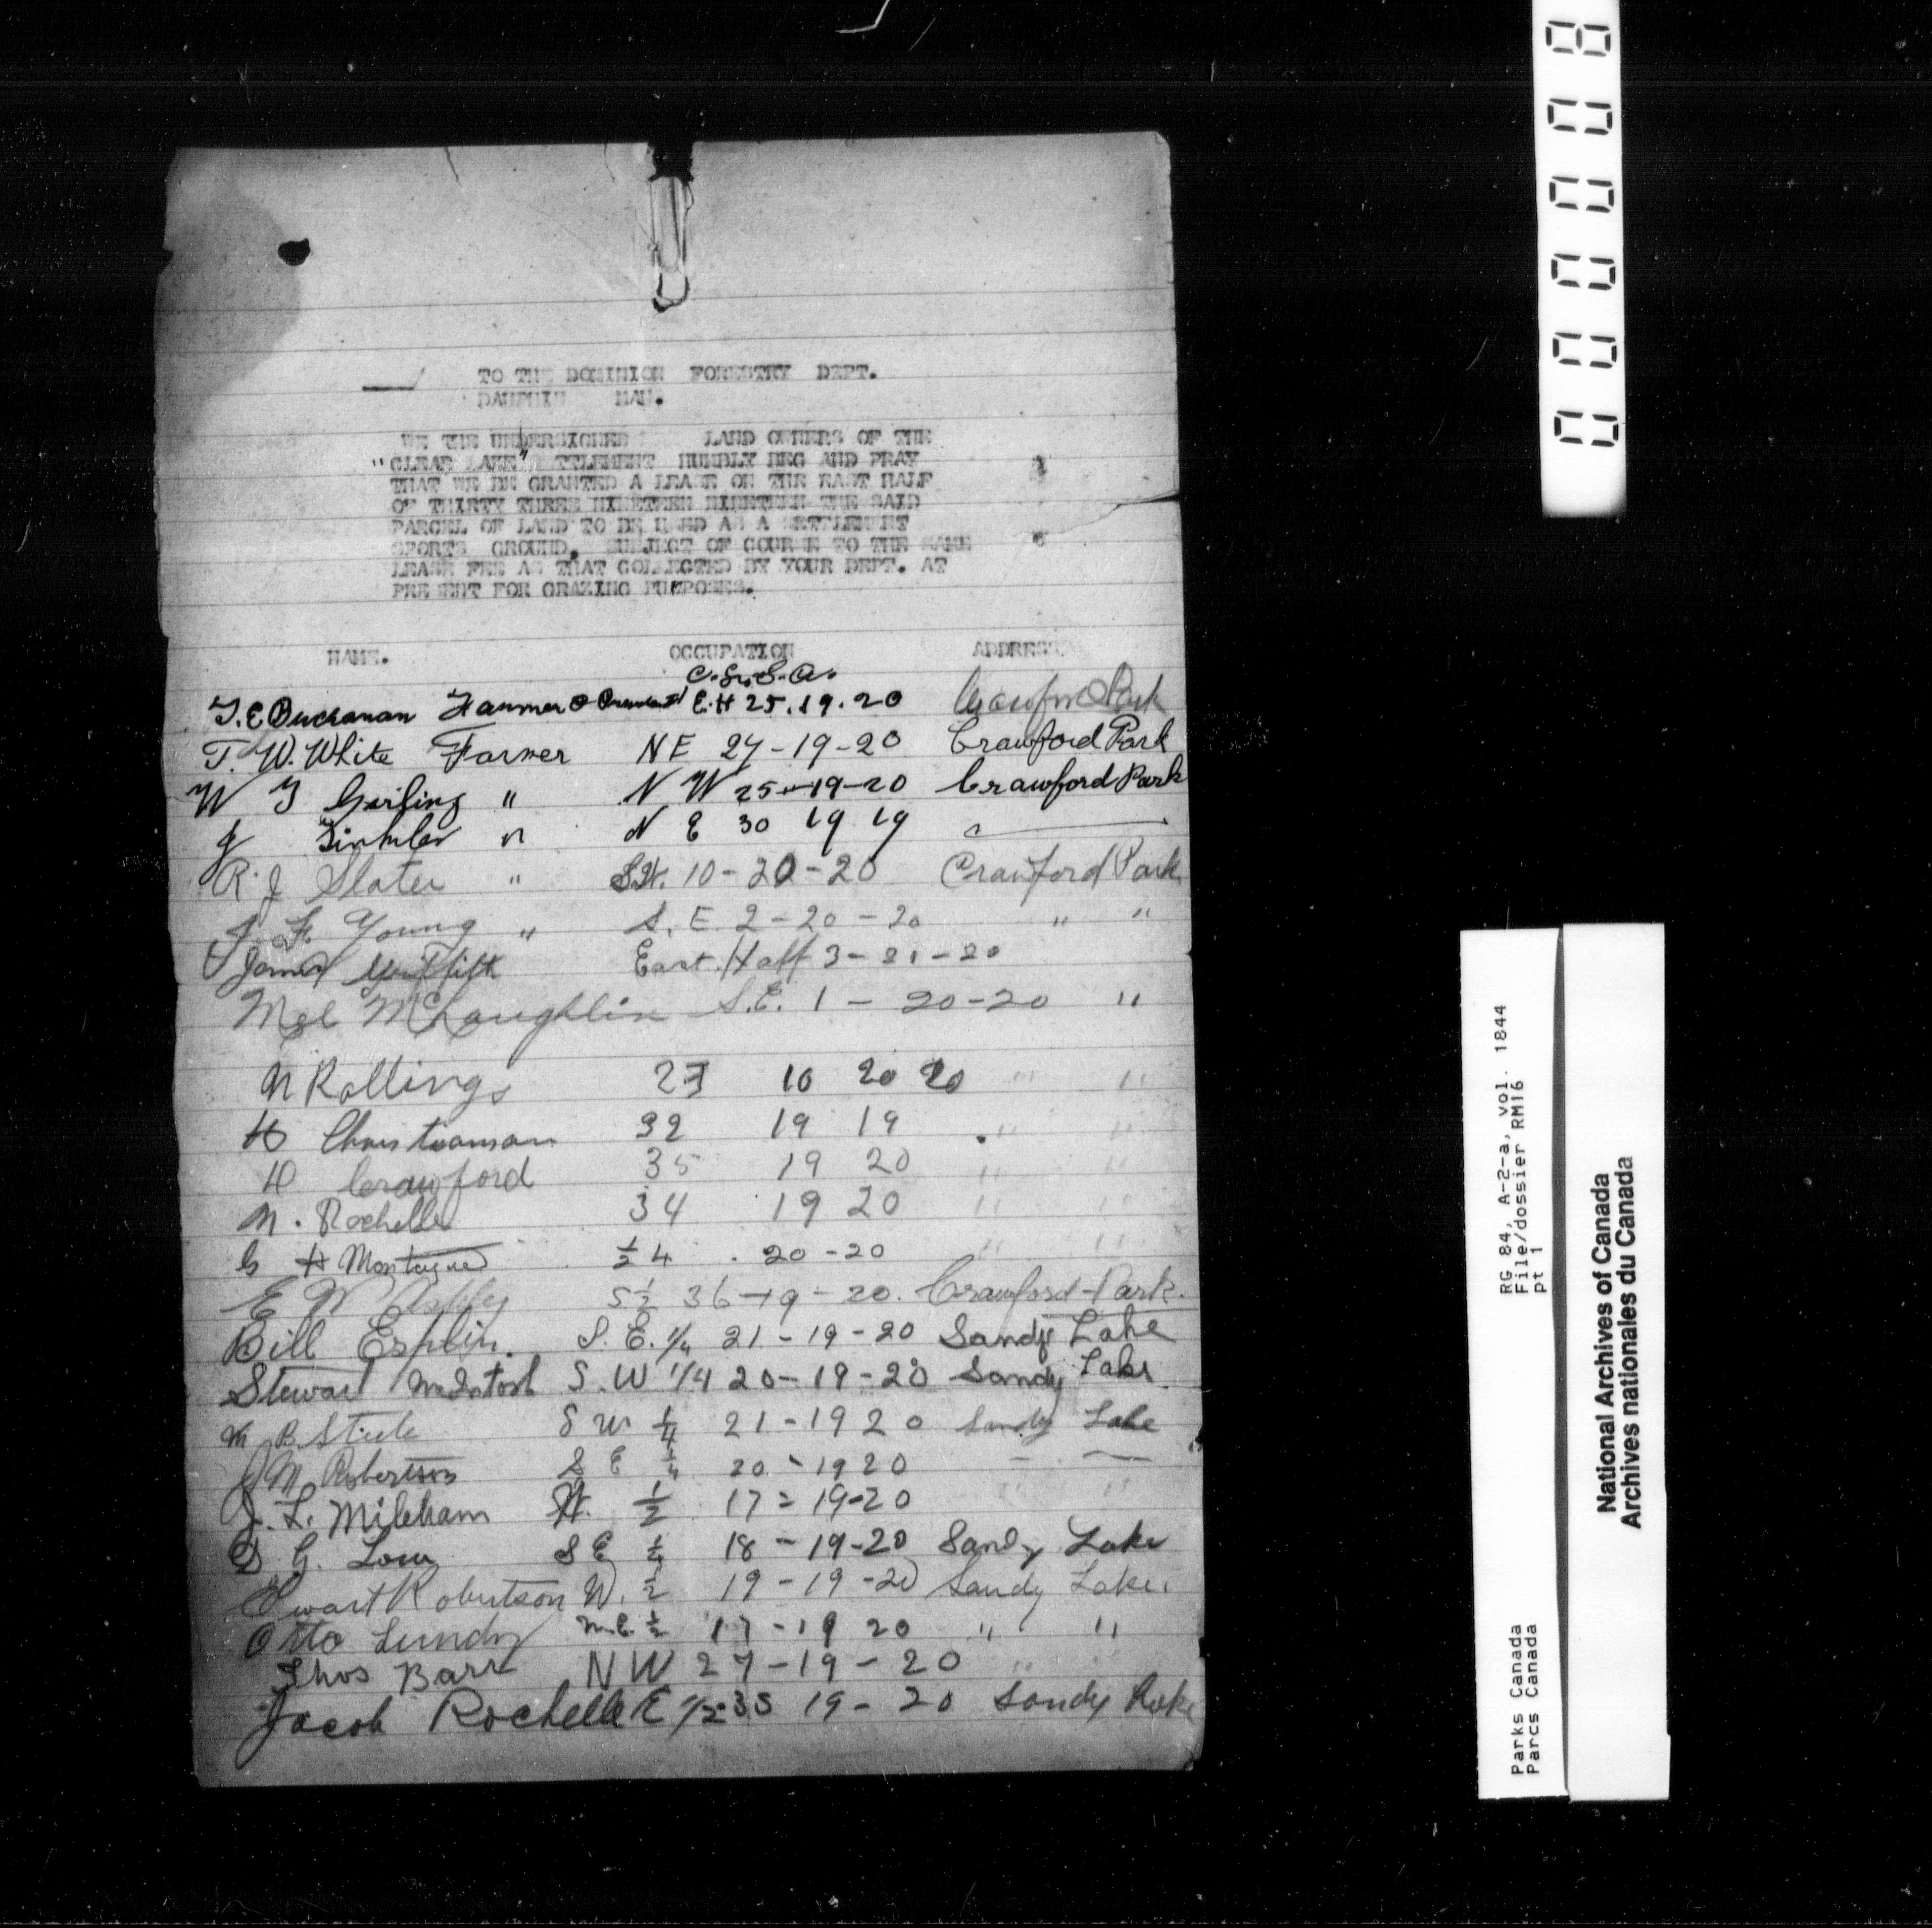 TO THE DOMINION FORESTRY DEPT.
DAUPHIN MAN.
WE THE UNDERSIGNED LAND OWNERS OF THE
"CLEAR LAKE" TTLEMENT HUMBLY BEG AND PRAY
THAT WE BE GRANTED A LEASE ON THE EAST HALF
OF THIRTY THREE NINETEEN NINETEEN THE SAID
PARCEL OF LAND TO BE USED AS A SETTLEMENT
SPORTS GROUND, SUBJECT OF COURSE TO THE SAME
LEASE FEE AS THAT COLLECTED BY YOUR DEPT. AT
PRESENT FOR GRAZING PURPOSES.
NAME. OCCUPATION ADDRESS
T. E Buchanan Farmer & President E.H 25.19.20 Crawford Park
T. W. White Farmer NE 27-19-20 Crawford Park
W J Gerling " N W 25-19-20 Crawford Park
J " N E 30 19 19
R. J Slater " SW. 10-20-20 Crawford Park
J. F. Young " S. E 2-20-20 " "
James Griffith East Half 3-21-20
Mel McLaughlin S.E. 1 - 20-20 "
N Rollings 23 10 20 20 " "
H Christianson 32 19 19 " "
D Crawford 35 19 20 " "
N. Rochelle 34 19 20 " "
G H Montague ½ 4 . 20-20 " "
E W S½ 36-19-20. Crawford Park.
Bill Esplin. S. E. 1/4 21-19-20 Sandy Lake
Stewart McIntosh S. W 1/4 20-19-20 Sandy Lake
W B. Steele S W ¼ 21-19 20 Sandy Lake
J M. Robertson S E ¼ 20-19 20
J. L. Mileham W. ½ 17=19-20
D. G. Low S E ¼ 18-19-20 Sandy Lake
Ewart Robertson W. ½ 19-19-20 Sandy Lake.
Otto Lundy N.E. ½ 17-19 20 " "
Thos Barr NW 27-19-20 "
Jacob Rochelle E 1/2 35 19-20 Sandy Lake
RG 84, A-2-a, vol. 1844
File/dossier RM16
pt 1
Parks Canada
Parcs Canada
National Archives of Canada
Archives nationales du Canada